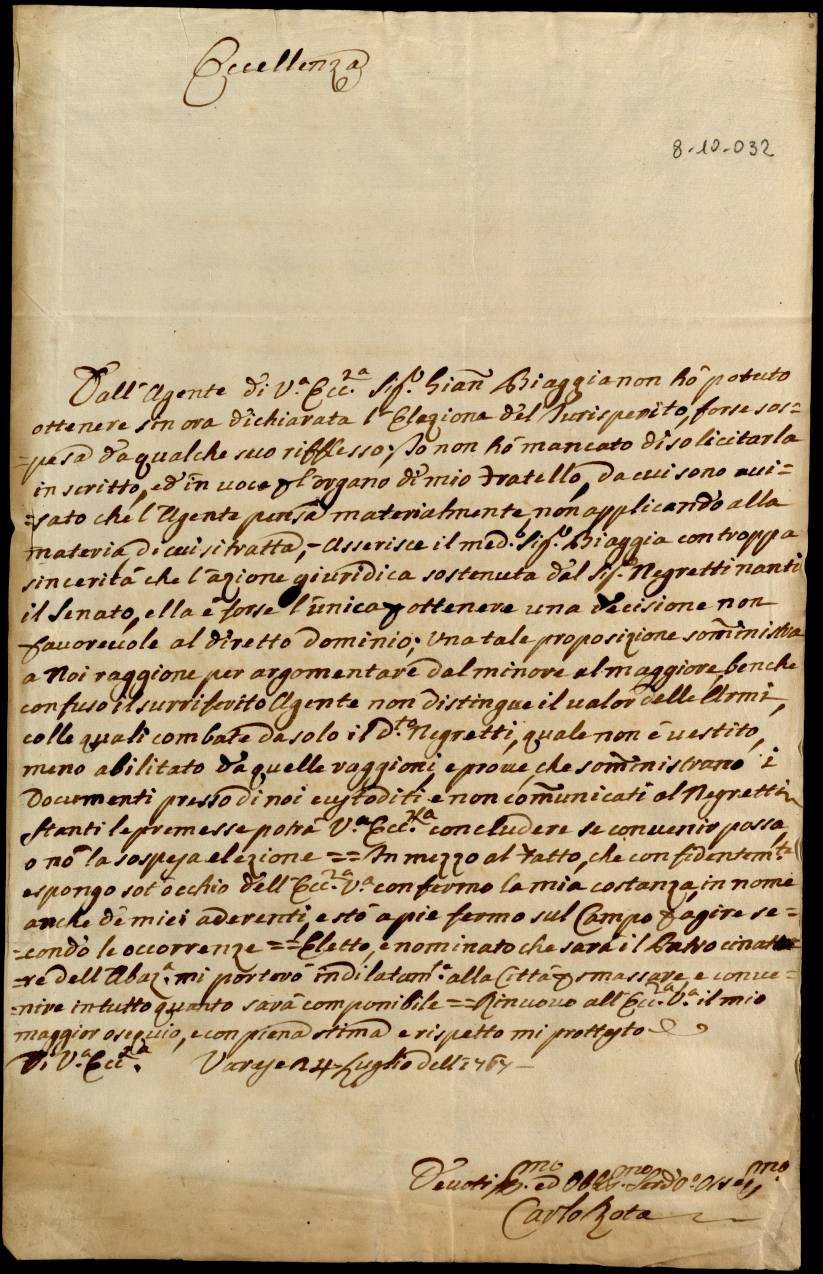 Eccellenza
8-10-032
Dall'Agente di V.ª Ecc.ª Sig.r Gian Biaggia non hò potuto
ottenere sin ora dichiarata l'Elezione del Jurisperito, forse sos=
=pesa da qualche suo riflesso; Io non hò mancato di solicitarla
in scritto, ed in voce p l'organo di mio Fratello, da cui sono avi=
=sato che l'Agente pensa materialmente, non applicando alla
materia di cui si tratta,= Asserisce il med.º Sig.r Biaggia con troppa
sincerità che l'azione giuridica sostenuta dal Sig.r Negretti nanti
il Senato, ella è forse l'unica p ottenere una decisione non
favorevole al diretto Dominio; Una tale proposizione som̃inistra
a Noi raggione per argomentare dal minore al maggiore, benche
confuso il surriferito Agente non distingue il valor delle Armi,
colle quali combate da solo il D.to Negretti, quale non è vestito,
meno abilitato da quelle raggioni, e prove, che som̃inistrano i
Documenti presso di noi custoditi e non com̃unicati al Negretti
Stanti le premesse potrà V.ª Ecc.za concludere se convenir possa,
o nò la sospesa elezione == In mezzo al Fatto, che confidentem.te
espongo sot'occhio dell'Ecc.za V.ª confermo la mia costanza, in nome
anche de miei aderenti, e stò a pie fermo sul Campo p agire se=
=condo le occorrenze == Eletto, e nominato che sarà il Patrocinato=
=re dell'Abaz.ª mi porterò indilatam.te alla Città p smassare, e conve=
=nire in tutto quanto sarà componibile == Rinuovo all'Ecc.za V.ª il mio
maggior osequio, e con piena stima e rispetto mi prottesto
Di V.ª Ecc.za Varese 24 Luglio dell 1767
Devotis.mo ed Obbl.mo Serv.e Osseq.mo
Carlo Rota